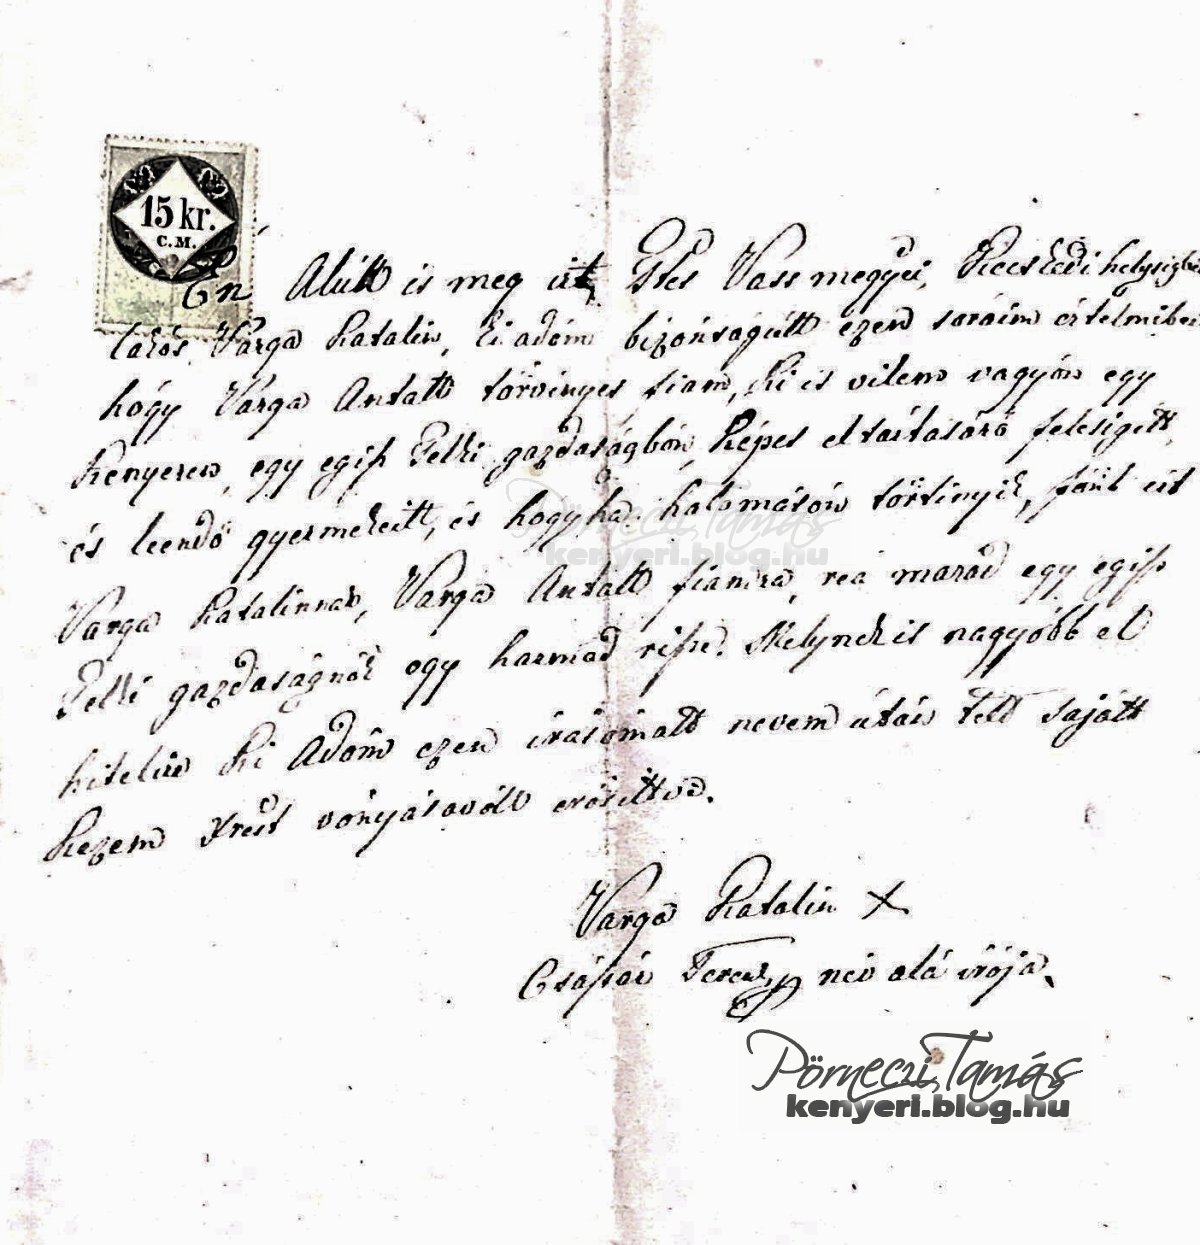 15 kr.
C.M.
Én Alúll is meg irt Ttes Vass megyei, Kecskédi helysigben
lakós Varga Katalin, Ki adóm bizónságúlt ezen soraim értelmiben
hógy Varga Antalt törvinyes fiam, Ki is vilem vagyón egy
Kenyeren, egy egisz Telki gazdaságbón, Képes eltartására felesigitt,
és leendő gyermekeitt, és hogy ha halomásón törtinyik, fönt irt
Varga Katalinnak, Varga Antalt fiamra, rea marad egy egisz
Telki gazdaságnók egy harmad risze. Melynek is nagyóbb el
hitelire Ki Adóm ezen irásómatt nevem útán tett saját
Kezem Xreszt vónyásavólt erősittve.
Varga Katalin X
Csápár Ferencz név alá irója.
Pörneczi Tamás
kenyeri.blog.hu
Pörneczi Tamás
kenyeri.blog.hu